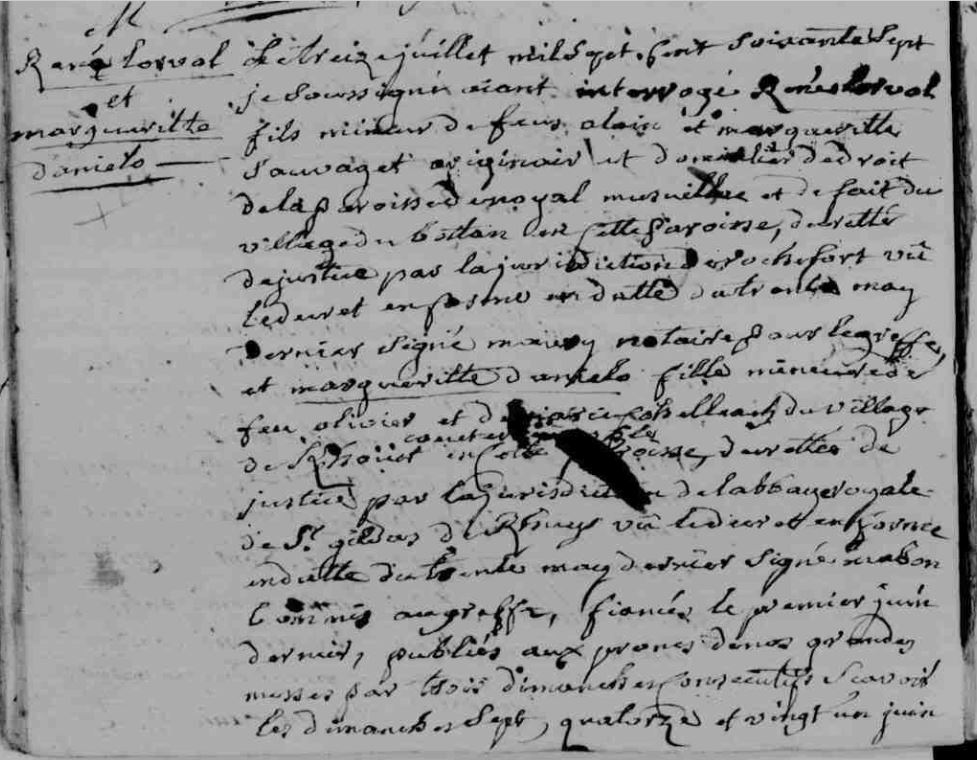 M
René Lorvol
et
margueritte
daniélo
Le treize juillet mil sept cent soixante sept
je soussigné aiant interrogé René Lorvol
fils mineur de feus alain et margueritte
Sauvaget originair et domicilier de droit
de la paroisse de noyal musuillac et de fait du
village du botlan en cette Paroisse, decretté
de justice par la juridiction de rochefort vû
le decret en forme en datte du trente may
dernier Signé maury notaire pour le greffe,
et margueritte daniélo fille mineure de
feu olivier et de marie du village
de en cette paroisse, decrettée de
justice par la jurisdiction de l'abbaye royale
de St gildas de Rhuys vû le decret en forme
en datte du trente may dernier Signé mabon
Commis au greffe, fiancés le premier juin
dernier, publiés aux prones de nos grandes
messes par trois dimanches consecutifs Scavoir
les dimanches Sept, quatorze et vingt un juin